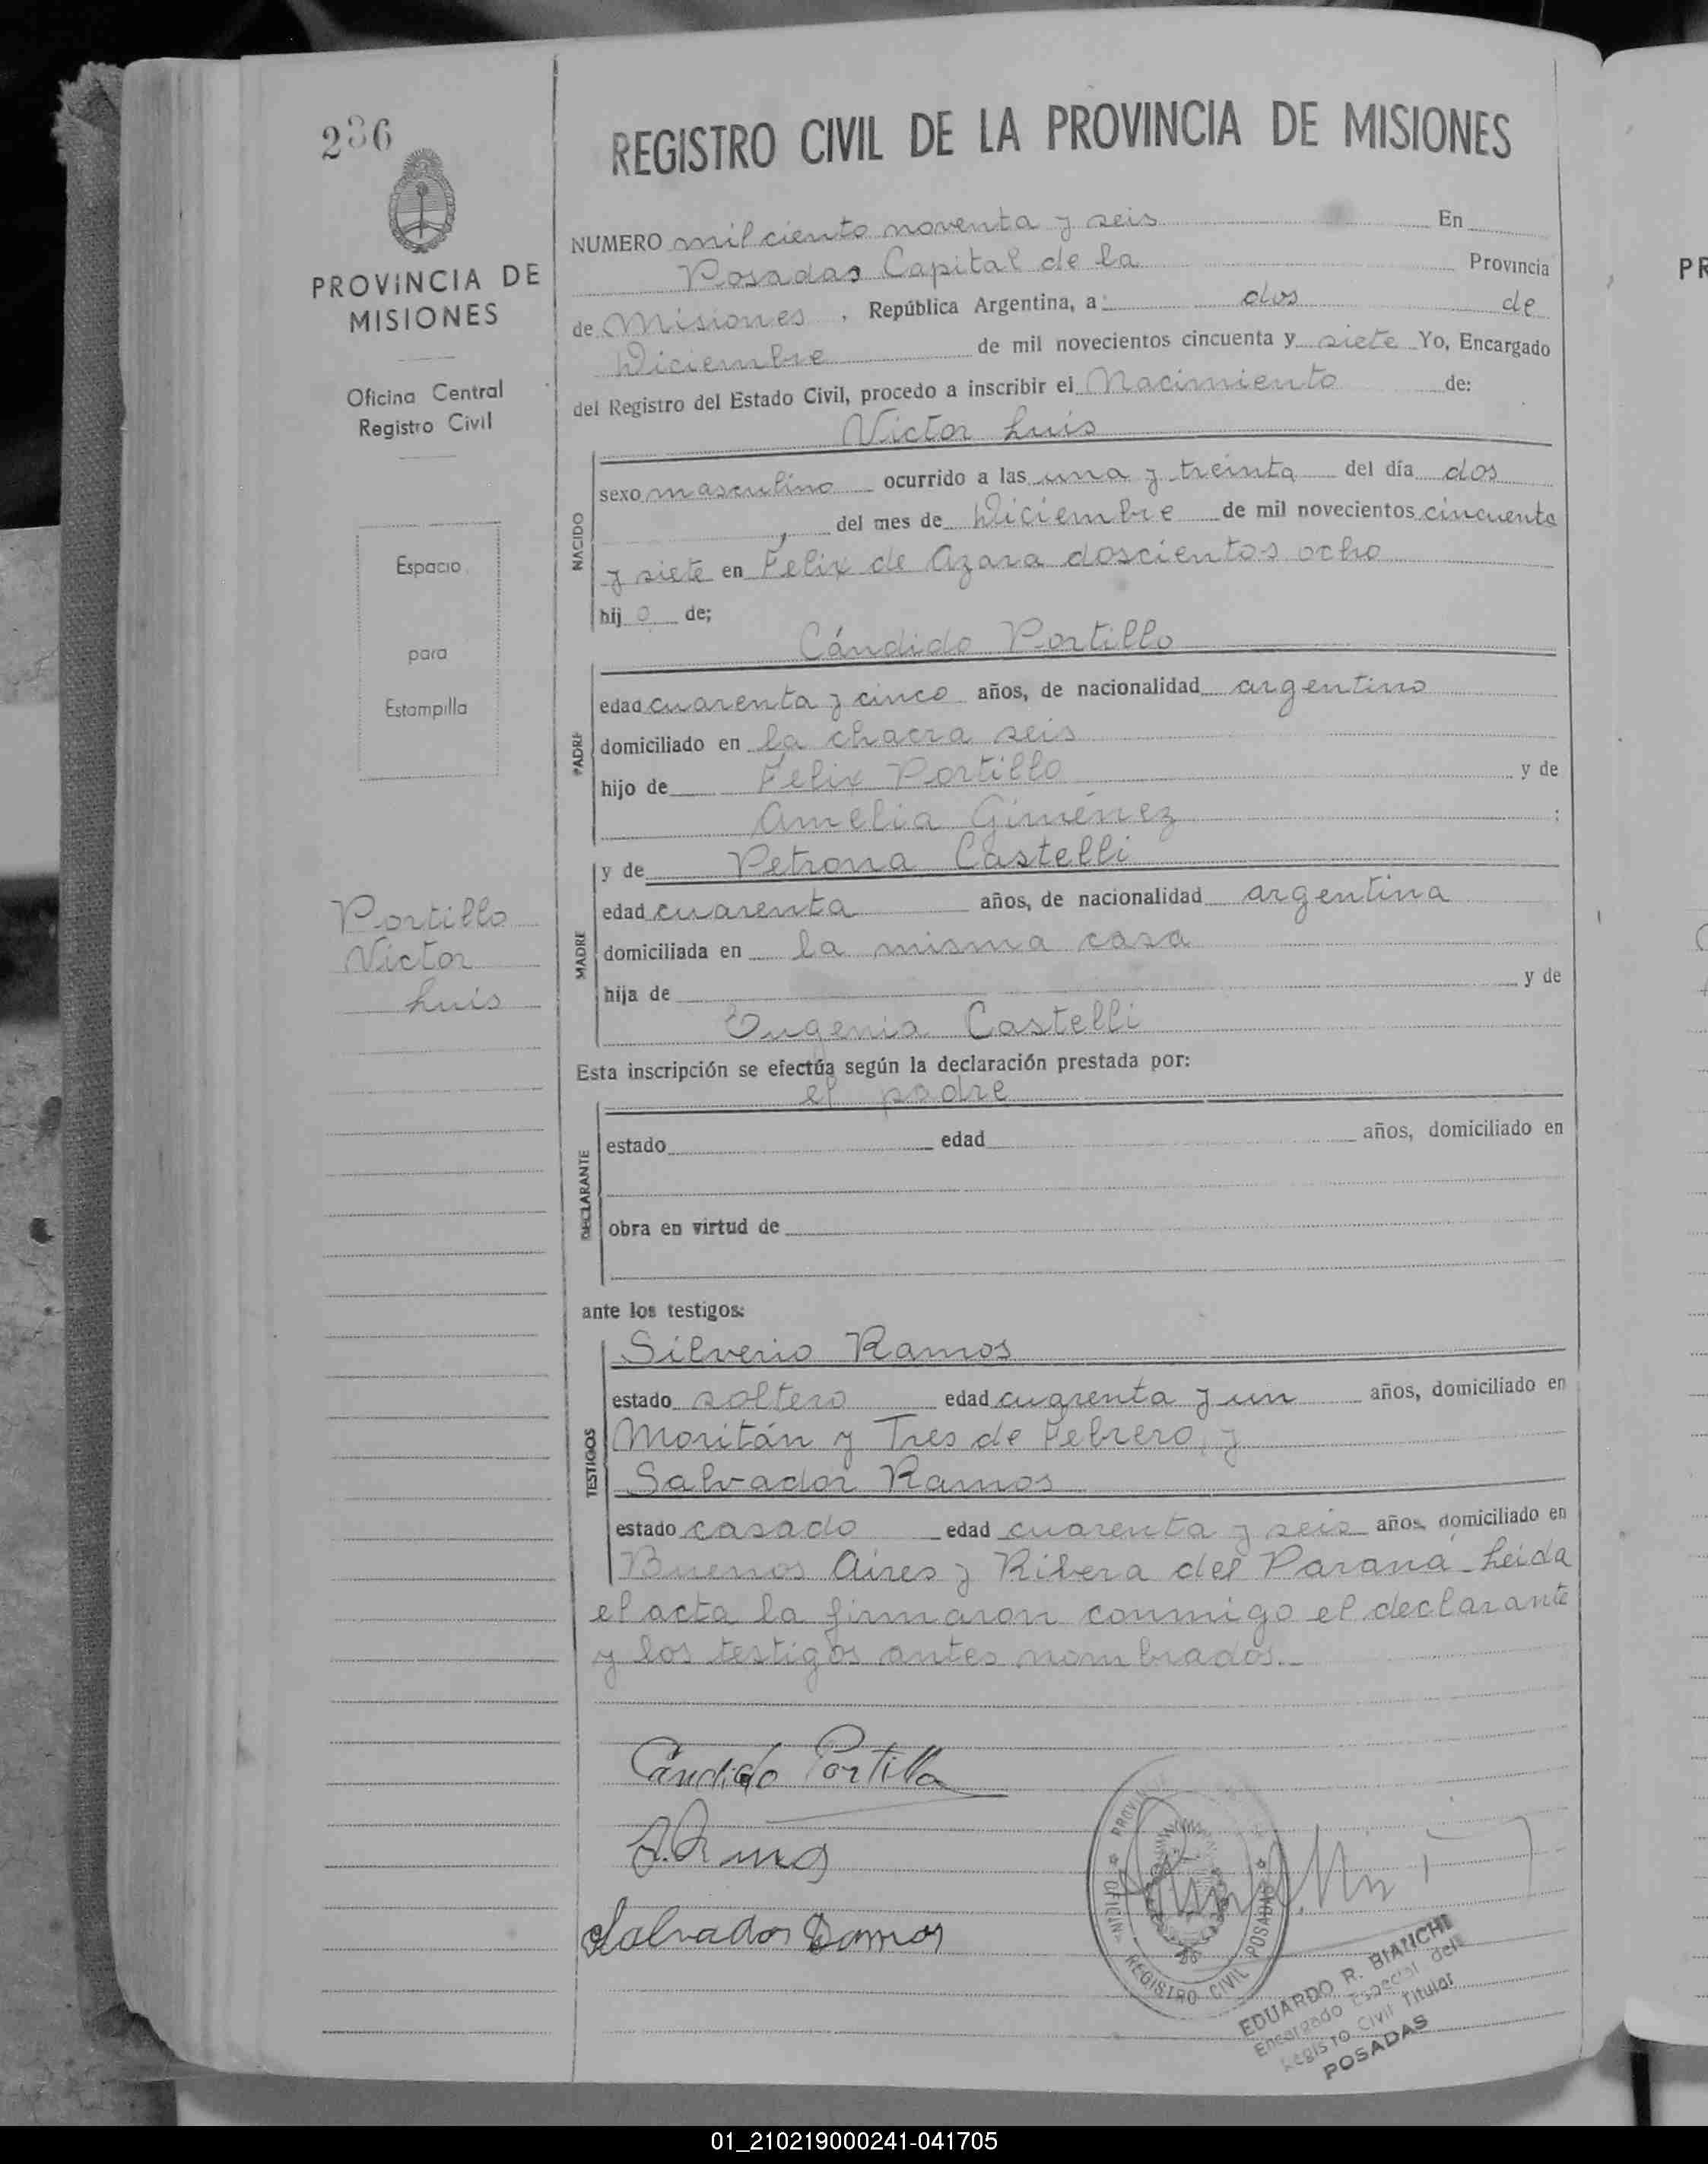 236
PROVINCIA DE
MISIONES
Oficina Central
Registro Civil
Espacio
para
Estampilla
Portillo
Victor
Luis
REGISTRO CIVIL DE LA PROVINCIA DE MISIONES
NUMERO mil ciento noventa y seis En
Posadas Capital de la Provincia
de Misiones, República Argentina, a dos de
Diciembre de mil novecientos cincuenta y siete Yo, Encargado
del Registro del Estado Civil, procedo a inscribir el Nacimiento de:
Victor Luis
NACIDO
sexo masculino ocurrido a las una y treinta del día dos
del mes de Diciembre de mil novecientos cincuenta
y siete en Félix de Azara doscientos ocho
hij o de;
Cándido Portillo
PADRE
edad cuarenta y cinco años, de nacionalidad argentino
domiciliado en la chacra seis
hijo de Felix Portillo y de
Amelia Giménez ;
y de Petrona Castelli
MADRE
edad cuarenta años, de nacionalidad argentina
domiciliada en la misma casa
hija de y de
Eugenia Castelli
Esta inscripción se efectúa según la declaración prestada por:
el padre
DECLARANTE
estado edad años, domiciliado en
obra en virtud de
ante los testigos:
TESTIGOS
Silverio Ramos
estado soltero edad cuarenta y un años, domiciliado en
Moritán y Tres de Febrero, y
Salvador Ramos
estado casado edad cuarenta y seis años, domiciliado en
Buenos Aires y Ribera del Paraná - Leida
el acta la firmaron conmigo el declarante
y los testigos antes nombrados.-
Candido Portillo
S. Ramos
Salvador Ramos
REGISTRO CIVIL POSADAS
EDUARDO R. BIANCHI
Encargado Especial del
Registro Civil Titular
POSADAS
PR
01_210219000241-041705